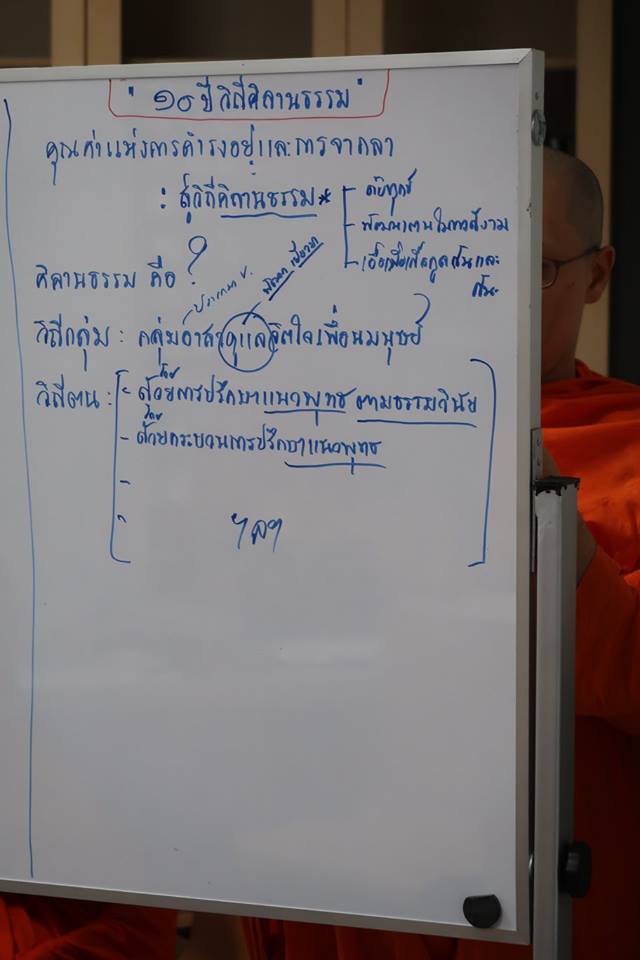 " ๑๐ ปี วิถีคิลานธรรม "
คุณค่าแห่งการดำรงอยู่และการจากลา
: สู่วิถีคิลานธรรม*
- ดับทุกข์
- พัฒนาตนในทางดีงาม
- เอื้อเฟื้อเกื้อกูลกันและกัน
คิลานธรรม คือ ?
ปรารถนา ช.
เยียวยา
วิถีกลุ่ม : กลุ่มอาสาดูแลจิตใจเพื่อนมนุษย์
วิถีตน : - ด้วยการปรึกษาแนวพุทธ ตามธรรมวินัย
- ด้วยกระบวนการปรึกษาแนวพุทธ
-
-
ฯลฯ